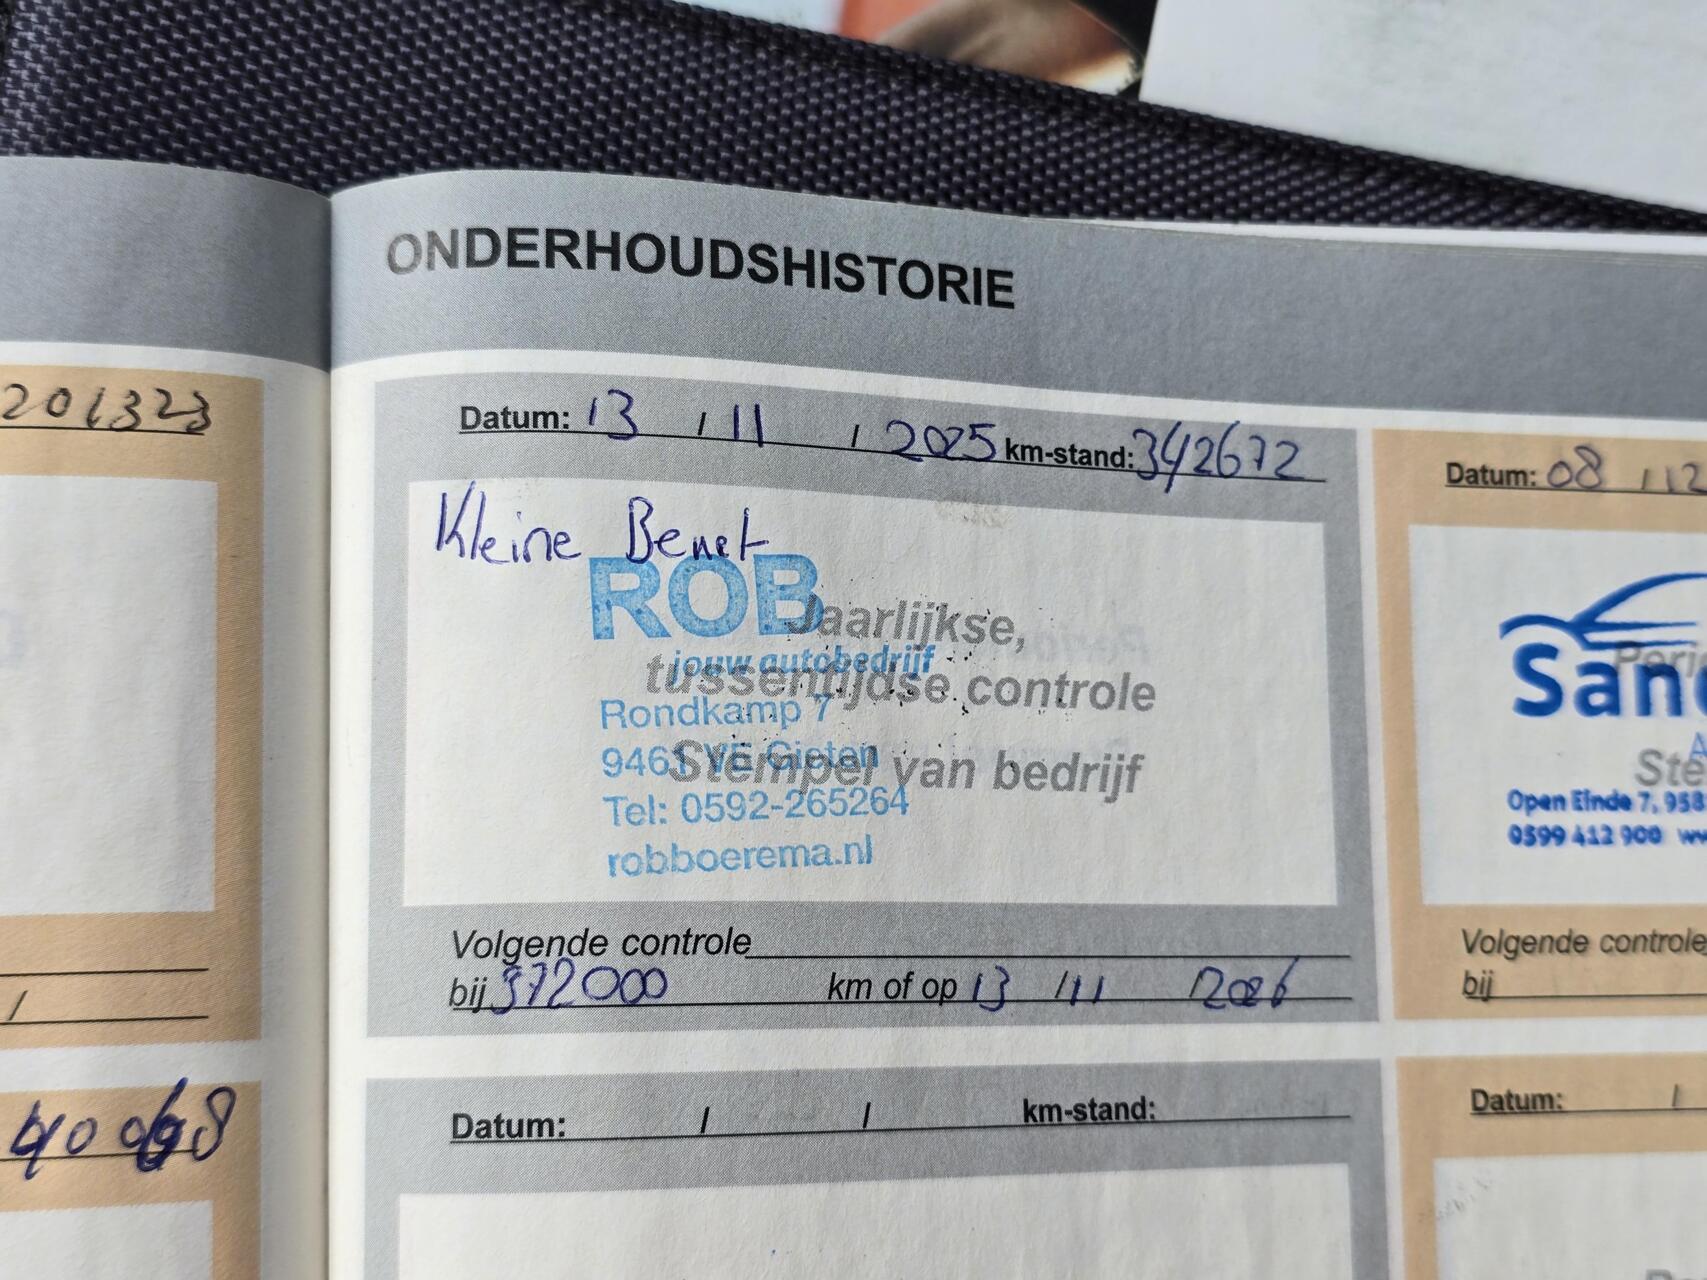 ONDERHOUDSHISTORIE
201323
Datum: 13 / 11 / 2025 km-stand: 342672
Kleine Beurt
ROB
jouw autobedrijf
Rondkamp 7
9461 VE Gieten
Tel: 0592-265264
robboerema.nl
Jaarlijkse,
tussentijdse controle
Stempel van bedrijf
Volgende controle
bij 372000 km of op 13 / 11 / 2026
Datum: / / km-stand:
Datum: 08 / 12
Sand
Open Einde 7, 958
0599 412 900
Volgende controle
bij
Datum: /